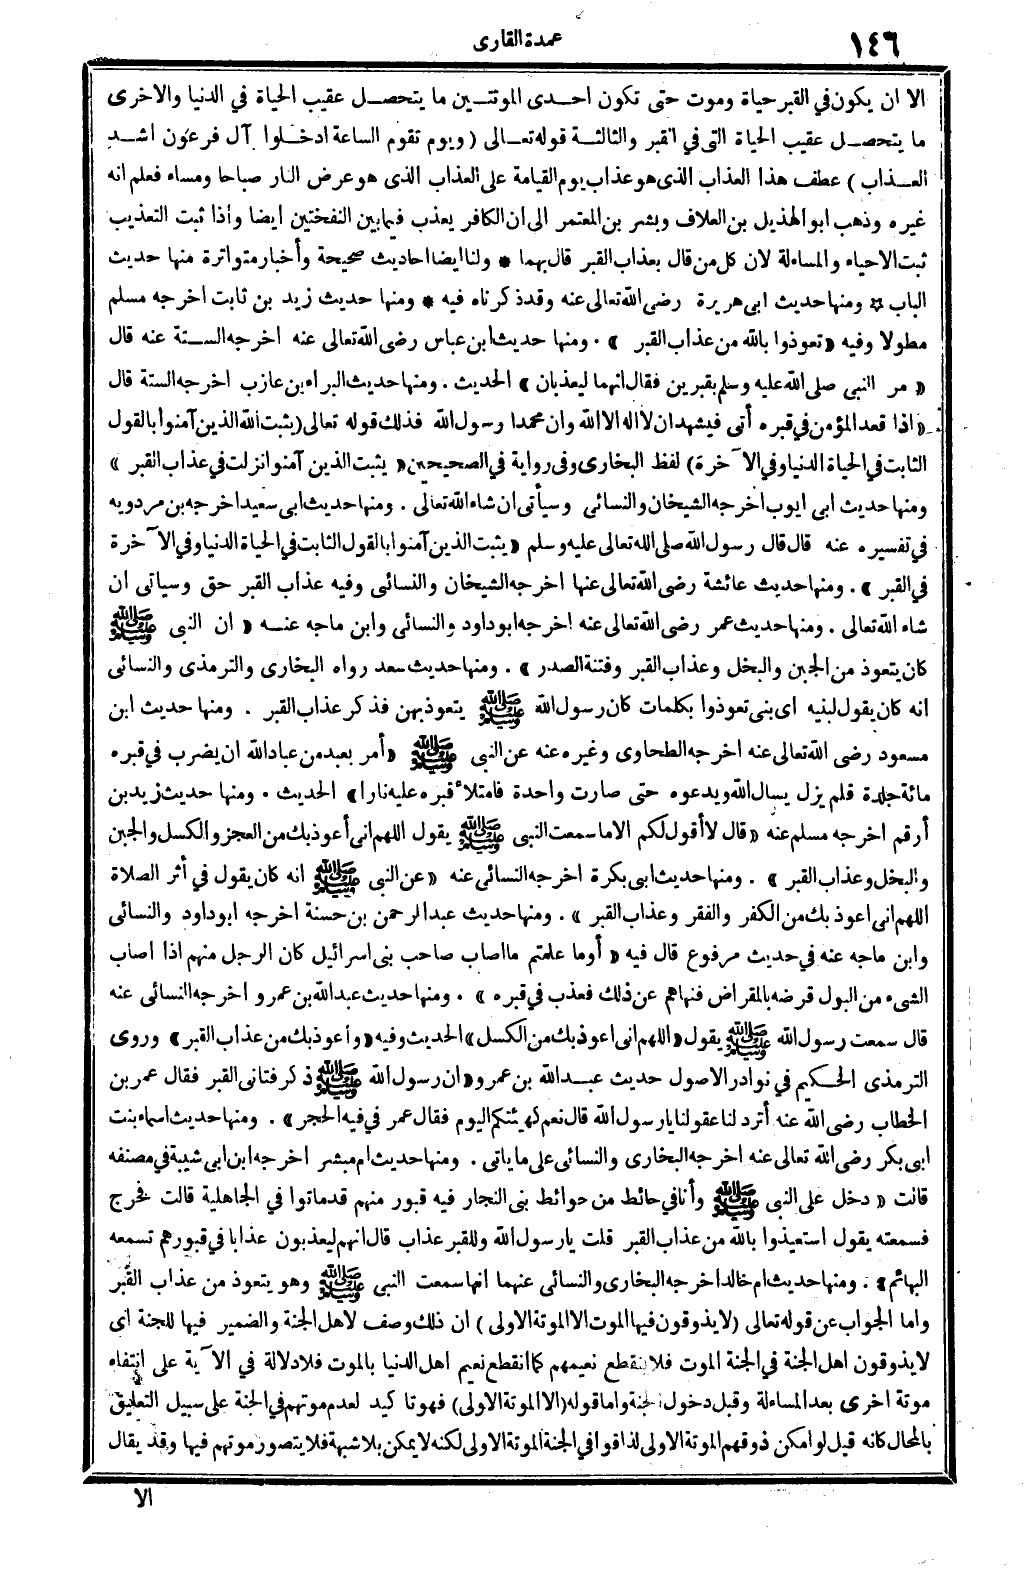 ١٤٦
عمدة القارى
الا ان يكون في القبر حياة وموت حتى تكون احدى الموتتين ما يتحصل عقيب الحياة في الدنيا والاخرى
ما يتحصل عقيب الحياة التى في القبر والثالثة قوله تعالى ( ويوم تقوم الساعة ادخلوا آل فرعون اشد
العذاب ) عطف هذا العذاب الذى هو عذاب يوم القيامة على العذاب الذى هو عرض النار صباحا ومساء فعلم انه
غيره وذهب ابو الهذيل بن العلاف وبشر بن المعتمر الى ان الكافر يعذب فيما بين النفختين ايضا واذا ثبت التعذيب
ثبت الاحياء والمساءلة لان كل من قال بعذاب القبر قال بهما * ولنا ايضا احاديث صحيحة وأخبار متواترة منها حديث
الباب * ومنها حديث ابى هريرة رضى الله تعالى عنه وقد ذكرناه فيه * ومنها حديث زيد بن ثابت اخرجه مسلم
مطولا وفيه « تعوذوا بالله من عذاب القبر » . ومنها حديث ابن عباس رضى الله تعالى عنه اخرجه الستة عنه قال
« مر النبى صلى الله عليه وسلم بقبرين فقال انهما ليعذبان » الحديث . ومنها حديث البراء بن عازب اخرجه الستة قال
« اذا قعد المؤمن في قبره أتى فيشهد ان لا اله الا الله وان محمدا رسول الله فذلك قوله تعالى (يثبت الله الذين آمنوا بالقول
الثابت في الحياة الدنيا وفي الآخرة) لفظ البخارى وفى رواية في الصحيحين « يثبت الذين آمنوا نزلت في عذاب القبر »
ومنها حديث ابى ايوب اخرجه الشيخان والنسائى وسيأتى ان شاء الله تعالى . ومنها حديث ابى سعيد اخرجه بن مردويه
في تفسيره عنه قال قال رسول الله صلى الله تعالى عليه وسلم « يثبت الذين آمنوا بالقول الثابت في الحياة الدنيا وفي الآخرة
في القبر » . ومنها حديث عائشة رضى الله تعالى عنها اخرجه الشيخان والنسائى وفيه عذاب القبر حق وسياتى ان
شاء الله تعالى . ومنها حديث عمر رضى الله تعالى عنه اخرجه ابو داود والنسائى وابن ماجه عنه « ان النبى ﷺ
كان يتعوذ من الجبن والبخل وعذاب القبر وفتنة الصدر » . ومنها حديث سعد رواه البخارى والترمذى والنسائى
انه كان يقول لبنيه اى بنى تعوذوا بكلمات كان رسول الله ﷺ يتعوذ بهن فذكر عذاب القبر . ومنها حديث ابن
مسعود رضى الله تعالى عنه اخرجه الطحاوى وغيره عنه عن النبى ﷺ « أمر بعبد من عباد الله ان يضرب في قبره
مائة جلدة فلم يزل يسال الله ويدعوه حتى صارت واحدة فامتلأ قبره عليه نارا » الحديث . ومنها حديث زيد بن
أرقم اخرجه مسلم عنه « قال لا أقول لكم الا ما سمعت النبى ﷺ يقول اللهم انى أعوذ بك من العجز والكسل والجبن
والبخل وعذاب القبر » . ومنها حديث ابى بكرة اخرجه النسائى عنه « عن النبى ﷺ انه كان يقول في أثر الصلاة
اللهم انى اعوذ بك من الكفر والفقر وعذاب القبر » . ومنها حديث عبد الرحمن بن حسنة اخرجه ابو داود والنسائى
وابن ماجه عنه في حديث مرفوع قال فيه « أوما علمتم ما اصاب صاحب بنى اسرائيل كان الرجل منهم اذا اصاب
الشىء من البول قرضه بالمقراض فنهاهم عن ذلك فعذب في قبره » . ومنها حديث عبد الله بن عمرو اخرجه النسائى عنه
قال سمعت رسول الله ﷺ يقول « اللهم انى اعوذ بك من الكسل » الحديث وفيه « واعوذ بك من عذاب القبر » وروى
الترمذى الحكيم في نوادر الاصول حديث عبد الله بن عمرو « ان رسول الله ﷺ ذكر فتانى القبر فقال عمر بن
الخطاب رضى الله عنه أترد لنا عقولنا يا رسول الله قال نعم كهيئتكم اليوم فقال عمر في فيه الحجر » . ومنها حديث اسماء بنت
ابى بكر رضى الله تعالى عنه اخرجه البخارى والنسائى على ما ياتى . ومنها حديث ام مبشر اخرجه ابن ابى شيبة في مصنفه
قالت « دخل على النبى ﷺ وأنا في حائط من حوائط بنى النجار فيه قبور منهم قد ماتوا في الجاهلية قالت فخرج
فسمعته يقول استعيذوا بالله من عذاب القبر قلت يا رسول الله وللقبر عذاب قال انهم ليعذبون عذابا في قبورهم تسمعه
البهائم » . ومنها حديث ام خالد اخرجه البخارى والنسائى عنهما انها سمعت النبى ﷺ وهو يتعوذ من عذاب القبر
واما الجواب عن قوله تعالى (لا يذوقون فيها الموت الا الموتة الاولى ) ان ذلك وصف لاهل الجنة والضمير فيها للجنة اى
لا يذوقون اهل الجنة في الجنة الموت فلا ينقطع نعيمهم كما انقطع نعيم اهل الدنيا بالموت فلا دلالة في الآية على انتفاء
موتة اخرى بعد المساءلة وقبل دخول الجنة واما قوله (الا الموتة الاولى) فهو تا كيد لعدم موتهم في الجنة على سبيل التعليق
بالمحال كانه قيل لو امكن ذوقهم الموتة الاولى لذاقوا في الجنة الموتة الاولى لكنه لا يمكن بلا شبهة فلا يتصور موتهم فيها وقد يقال
الا